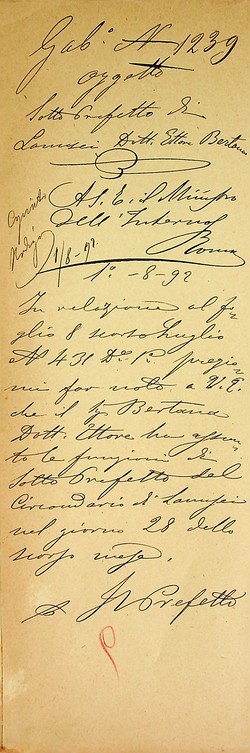 Gab.° N 1239
Oggetto
Sotto Prefetto di
Lanusei Dott. Ettore Bertana
A S. E. il Ministro
dell'Interno
Roma
1/8-92
1°-8-92
In relazione al fo-
glio 8 scorso Luglio
N 431 Do. 1a pregio-
mi far noto a V. E.
che il Bertana
Dott. Ettore ha assun-
to le funzioni di
Sotto Prefetto del
Circondario di Lanusei
nel giorno 28 dello
scorso mese.
Il Prefetto